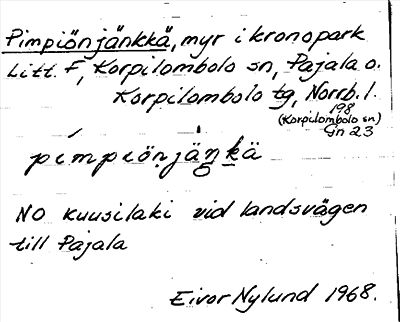 Pimpiönjänkkä, myr i kronopark
Litt. F, Korpilombolo sn, Pajala o.
Korpilombolo tg, Norrb. l.
198
(Korpilombolo sn)
Gn 23
pimpiönjäŋkä
NO Kuusilaki vid landsvägen
till Pajala
Eivor Nylund 1968.